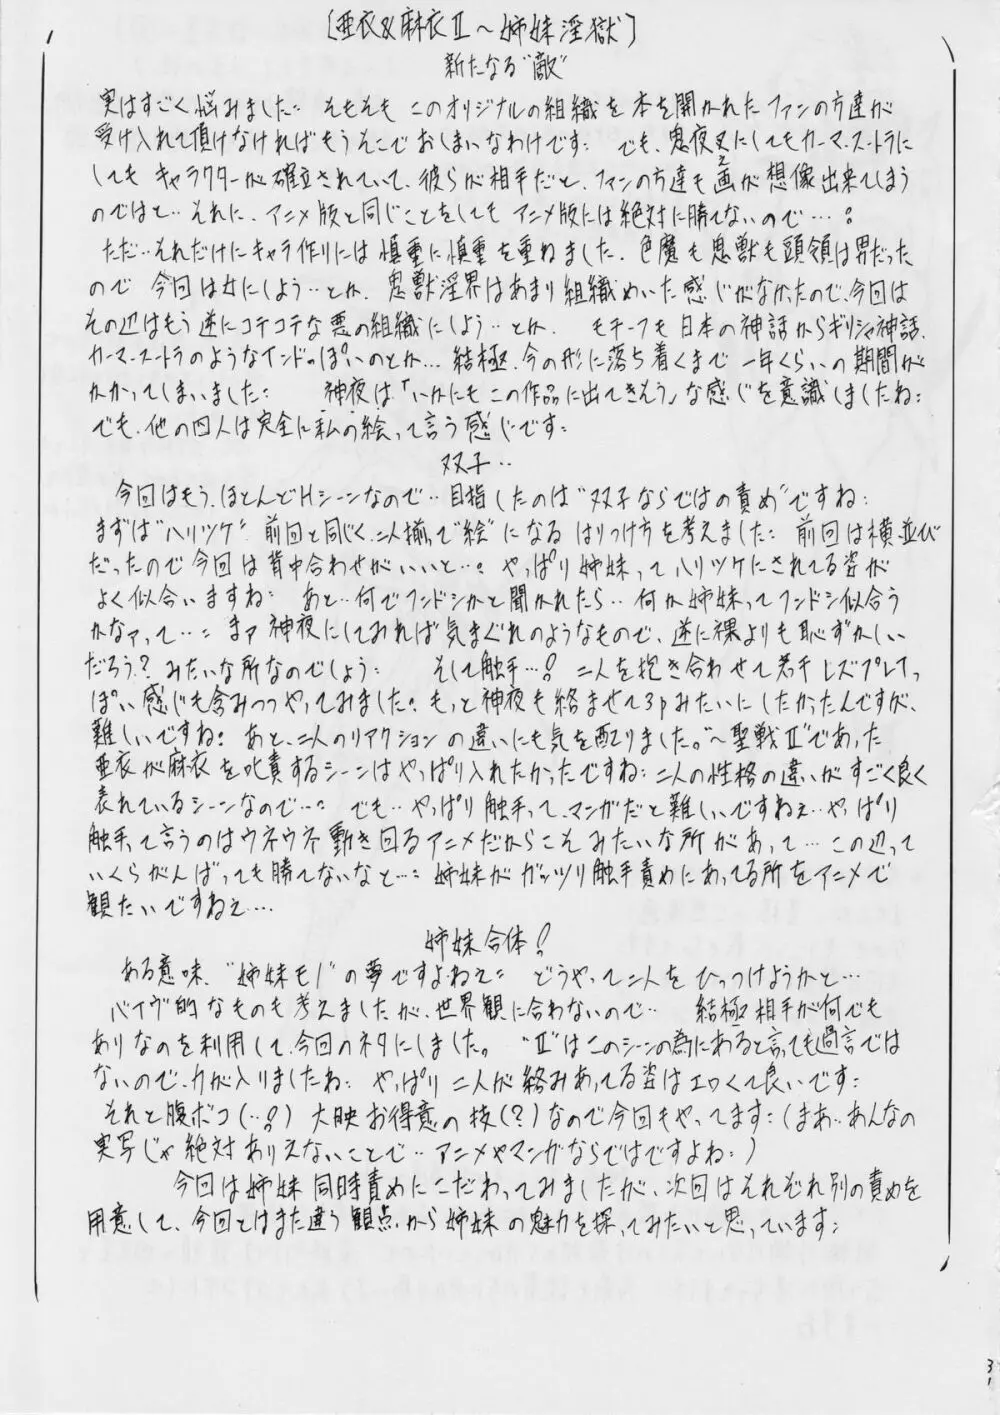 [亜衣&麻衣Ⅱ～姉妹淫獄]
新たなる"敵"
実はすごく悩みました… そもそも このオリジナルの組織を 本を開かれた ファンの方達が
受け入れて頂けなければもうそこで おしまいなわけです… でも、鬼夜叉にしてもカーマスートラに
しても キャラクターが 確立されていて、彼らが相手だと、ファンの方達も画が想像出来てしまう
のではと… それに、アニメ版と同じことをしても アニメ版には絶対に勝てないので…。
ただ…それだけにキャラ作りには 慎重に慎重を重ねました、色魔も鬼獣も頭領は男だった
ので 今回は女にしよう…とか、 鬼獣淫界はあまり組織めいた感じがなかったので、今回は
その辺はもう逆にコテコテな悪の組織にしよう…とか、 モチーフも日本の神話からギリシャ神話、
カーマスートラのようなインドっぽいのとか… 結極、今の形に落ち着くまで 一年くらいの期間が
かかってしまいました… 神夜は「いかにもこの作品に出てきそう」な感じを意識しましたね…
でも、他の四人は完全に私の絵って言う感じです…
双子…
今回はもう、ほとんどHシーンなので… 目指したのは"双子ならではの責め"ですね…
まずは"ハリツケ" 前回と同じく、二人揃って"絵"になる はりつけ方を考えました… 前回は横並び
だったので今回は背中合わせがいいと…。やっぱり姉妹ってハリツケにされてる姿が
よく似合いますね… あと…何でフンドシかと聞かれたら… 何か姉妹ってフンドシ似合う
かなァって…… まァ神夜にしてみれば気まぐれのようなもので、逆に裸よりも恥ずかしい
だろう?みたいな所なのでしょう… そして触手…! 二人を抱き合わせて若干レズプレイっ
ぽい感じも含みつつやってみました。もっと神夜も絡ませて3pみたいにしたかったんですが、
難しいですね。あと、二人のリアクションの違いにも気を配りました。"～聖戦Ⅱ"であった
亜衣が麻衣を叱責するシーンはやっぱり入れたかったですね…二人の性格の違いがすごく良く
表れているシーンなので…。 でも…やっぱり触手って、マンガだと難しいですねぇ…やっぱり
触手って言うのはウネウネ動き回るアニメだからこそみたいな所があって… この辺って
いくらがんばっても勝てないなと…… 姉妹がガッツリ触手責めにあってる所をアニメで
観たいですねぇ…
姉妹合体!
ある意味、"姉妹モノ"の夢ですよねぇ… どうやって二人をひっつけようかと…
バイヴ的なものも考えましたが、世界観に合わないので… 結極相手が何でも
ありなのを利用して、今回のネタにしました。"Ⅱ"はこのシーンの為にあると言っても過言では
ないので、力が入りましたね… やっぱり二人が絡みあってる姿はエロくて良いです…
それと腹ボコ(…!) 大映お得意の技(?)なので今回もやってます…(まあ…あんなの
実写じゃ絶対ありえないことで… アニメやマンガならではですよね…)
今回は姉妹同時責めにこだわってみましたが、次回はそれぞれ別の責めを
用意して、今回とはまた違う観点から姉妹の魅力を探ってみたいと思っています…
31